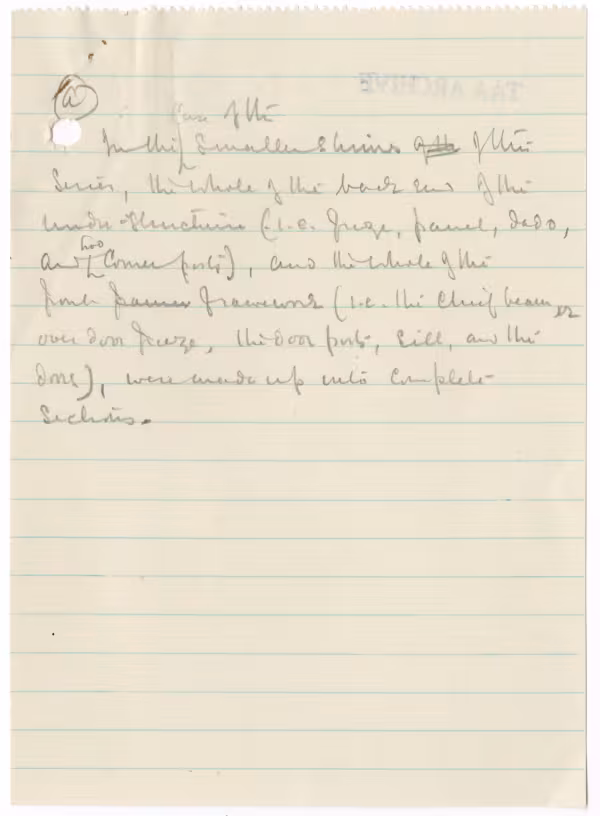 TAA ARCHIVE
(a)
case of the
In the smaller shrines of the of this
Series, the whole of the back end of the
under-structure (i.e. frieze, panel, dado,
and two corner posts), and the whole of the
front framework (i.e. the chief beam, or
over door frieze, the door posts, sill, and the
doors), were made up into complete
Sections.